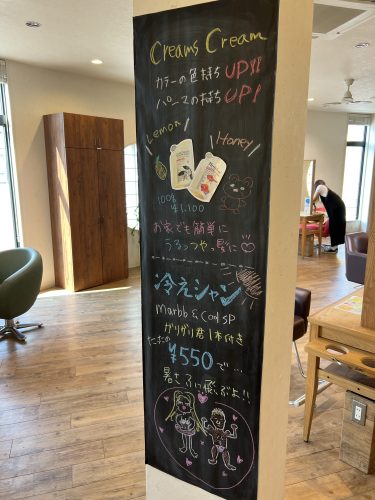 Creams Cream
カラーの色持ちUP!!
パーマの持ちUP!
Lemon
Honey
100g
¥1,100
お家でも簡単に
うるっつや髪に♡
冷えシャン
marbb & Cool SP
ガリガリ君1本付き
¥550で…
暑さふっ飛ぶよ!!